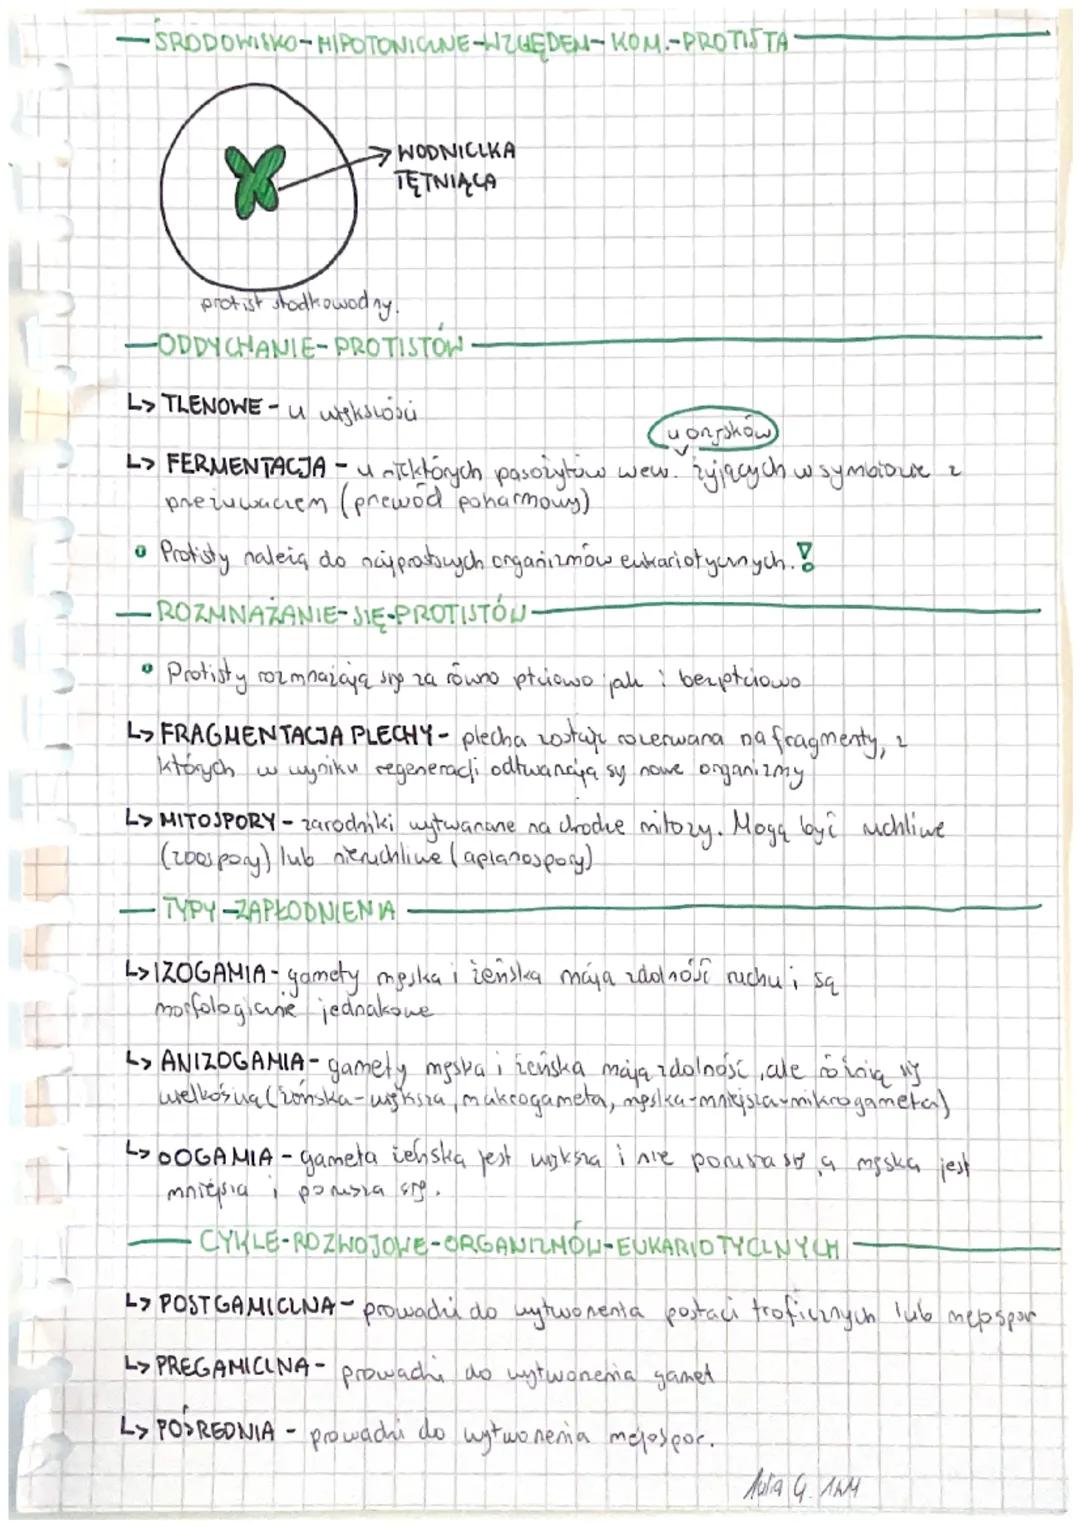 ŚRODOWISKO-HIPOTONICZNE-WZGLĘDEM-KOM.-PROTISTA
WODNICZKA
TĘTNIĄCA
protist słodkowodny.
ODDYCHANIE-PROTISTÓW
↳ TLENOWE - u większości
u orzęsków
↳ FERMENTACJA - u niektórych pasożytów wew. żyjących w symbiozie z
przeżuwaczem (przewód pokarmowy)
• Protisty należą do najprostszych organizmów eukariotycznych.!
ROZMNAŻANIE-SIĘ-PROTISTÓW
• Protisty rozmnażają się za równo płciowo jak i bezpłciowo
↳ FRAGMENTACJA PLECHY - plecha zostaje rozerwana na fragmenty, z
których w wyniku regeneracji odtwarzają się nowe organizmy
↳ MITOSPORY - zarodniki wytwarzane na drodze mitozy. Mogą być ruchliwe
(zoospory) lub nieruchliwe (aplanospory)
TYPY-ZAPŁODNIENIA
↳ IZOGAMIA - gamety męska i żeńska mają zdolność ruchu i są
morfologicznie jednakowe
↳ ANIZOGAMIA - gamety męska i żeńska mają zdolność, ale różnią się
wielkością (żeńska-większa, makrogameta, męska-mniejsza-mikrogameta)
↳ OOGAMIA - gameta żeńska jest większa i nie porusza się, a męska jest
mniejsza i porusza się.
CYKLE-ROZWOJOWE-ORGANIZMÓW-EUKARIOTYCZNYCH
↳ POSTGAMICZNA - prowadzi do wytworzenia postaci troficznych lub mejospor
↳ PREGAMICZNA - prowadzi do wytworzenia gamet
↳ POŚREDNIA - prowadzi do wytworzenia mejospor.
G. 1LM